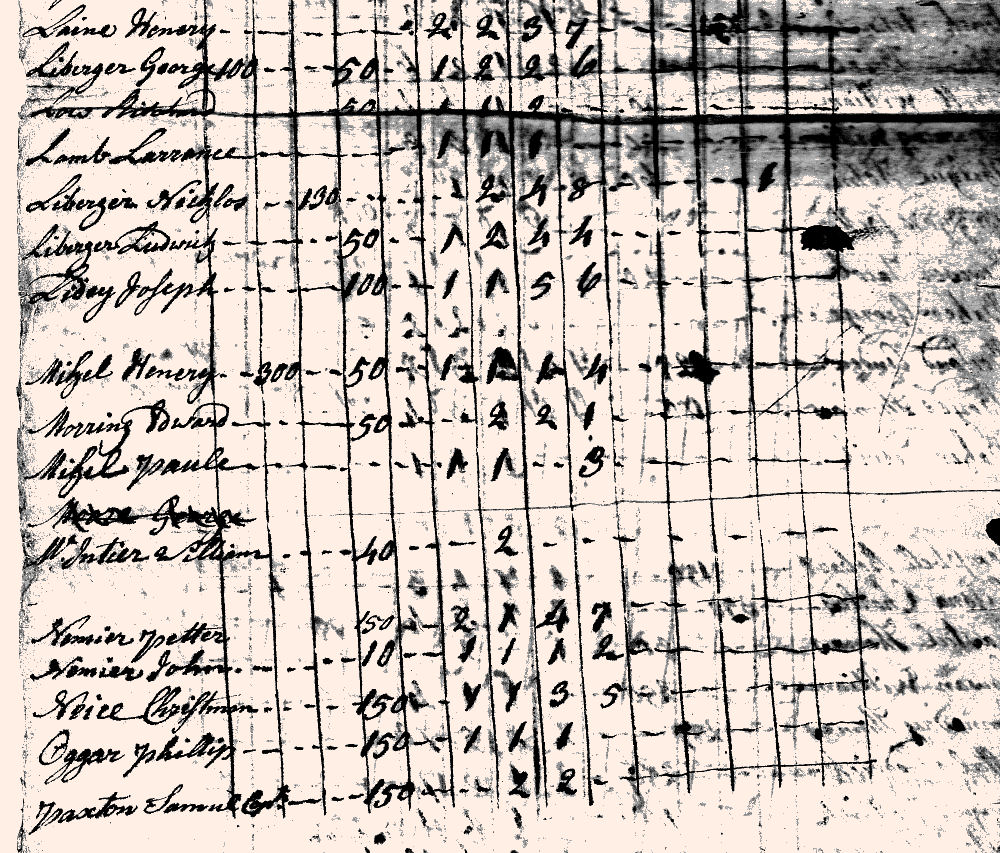 Laine Henery - - - - 2 2 3 7
Liberger George 100 - - 50 - - 1 2 2 6
Low 50 1 2
Lamb Larrance - - - - 1 1 1
Liberger Nichlos - - 130 - - - 1 2 4 8 - - - 1
Liberger Ludwick - - - 50 - - 1 2 4 4
Liday Joseph - - - 100 - - 1 1 5 6
Mihel Henery - - 300 - - 50 - - 1 1 1 4
Morring Edward - - - 50 - - 2 2 1
Mihel Paule - - - - 1 1 - - 3
George
McIntier William - - - 40 - - 2 - - -
Nemier Petter 150 - - 2 1 4 7
Nemier John - - - 10 - - 1 1 1 2
Neice Christman - - - 150 - 1 1 3 5
Oggar Phillip - - - 150 - 1 1 1
Paxton Samuel - - 150 - - - 2 2 -